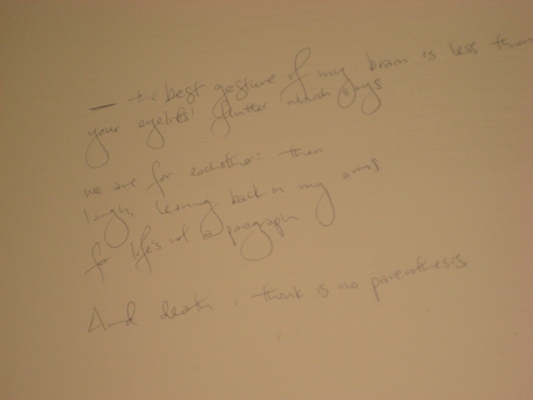 — the best gesture of my brain is less than
your eyelids' flutter which says
we are for eachother: then
laugh, leaning back in my arms
for life's not a paragraph
And death i think is no parenthesis